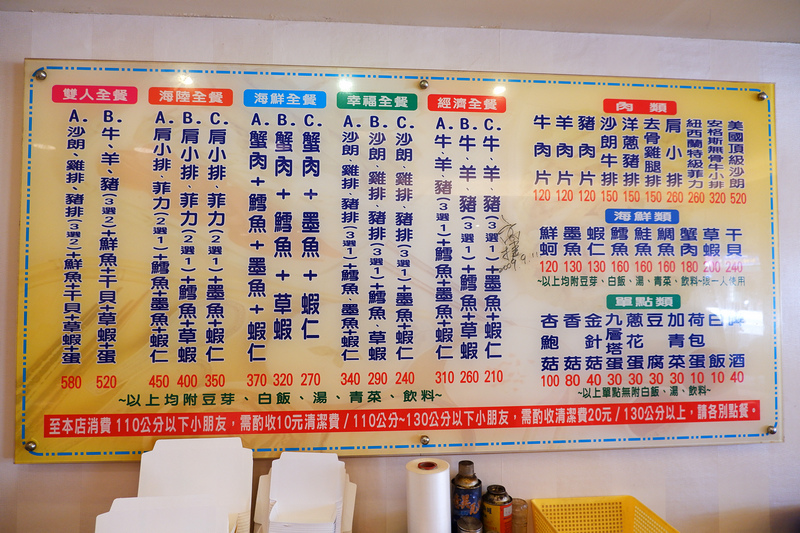 雙人全餐
A. 沙朗、雞排、豬排(3選2)+鮮魚+干貝+草蝦+蛋 580
B. 牛、羊、豬(3選2)+鮮魚+干貝+草蝦+蛋 520
海陸全餐
A. 肩小排、菲力(2選1)+鱈魚+墨魚+蝦仁 450
B. 肩小排、菲力(2選1)+鱈魚+草蝦 400
C. 肩小排、菲力(2選1)+墨魚+蝦仁 350
海鮮全餐
A. 蟹肉+鱈魚+墨魚+蝦仁 370
B. 蟹肉+鱈魚+草蝦 320
C. 蟹肉+墨魚+蝦仁 270
幸福全餐
A. 沙朗、雞排、豬排(3選1)+鱈魚、墨魚+蝦仁 340
B. 沙朗、雞排、豬排(3選1)+鱈魚、草蝦 290
C. 沙朗、雞排、豬排(3選1)+墨魚+蝦仁 240
經濟全餐
A. 牛、羊、豬(3選1)+鱈魚+墨魚+蝦仁 310
B. 牛、羊、豬(3選1)+鱈魚+草蝦 260
C. 牛、羊、豬(3選1)+墨魚+蝦仁 210
~以上均附豆芽、白飯、湯、青菜、飲料~
肉類
牛肉片 120
羊肉片 120
豬肉片 120
沙朗牛排 150
洋蔥豬排 150
去骨雞腿排 160
肩小排 260
紐西蘭特級菲力 260
安格斯無骨牛小排 320
美國頂級沙朗 520
海鮮類
鮮蚵 120
墨魚 130
蝦仁 130
鱈魚 160
鮭魚 160
鯛魚 160
蟹肉 180
草蝦 200
干貝 240
~以上均附豆芽、白飯、湯、青菜、飲料~限一人使用
單點類
杏鮑菇 100
香菇 80
金針菇 40
九層塔蛋 30
蔥花蛋 30
豆腐 30
加青菜 30
荷包蛋 10
白飯 10
啤酒 40
~以上單點無附白飯、湯、飲料~
至本店消費110公分以下小朋友，需酌收10元清潔費/110公分~130公分以下小朋友，需酌收清潔費20元/130公分以上，請各別點餐。